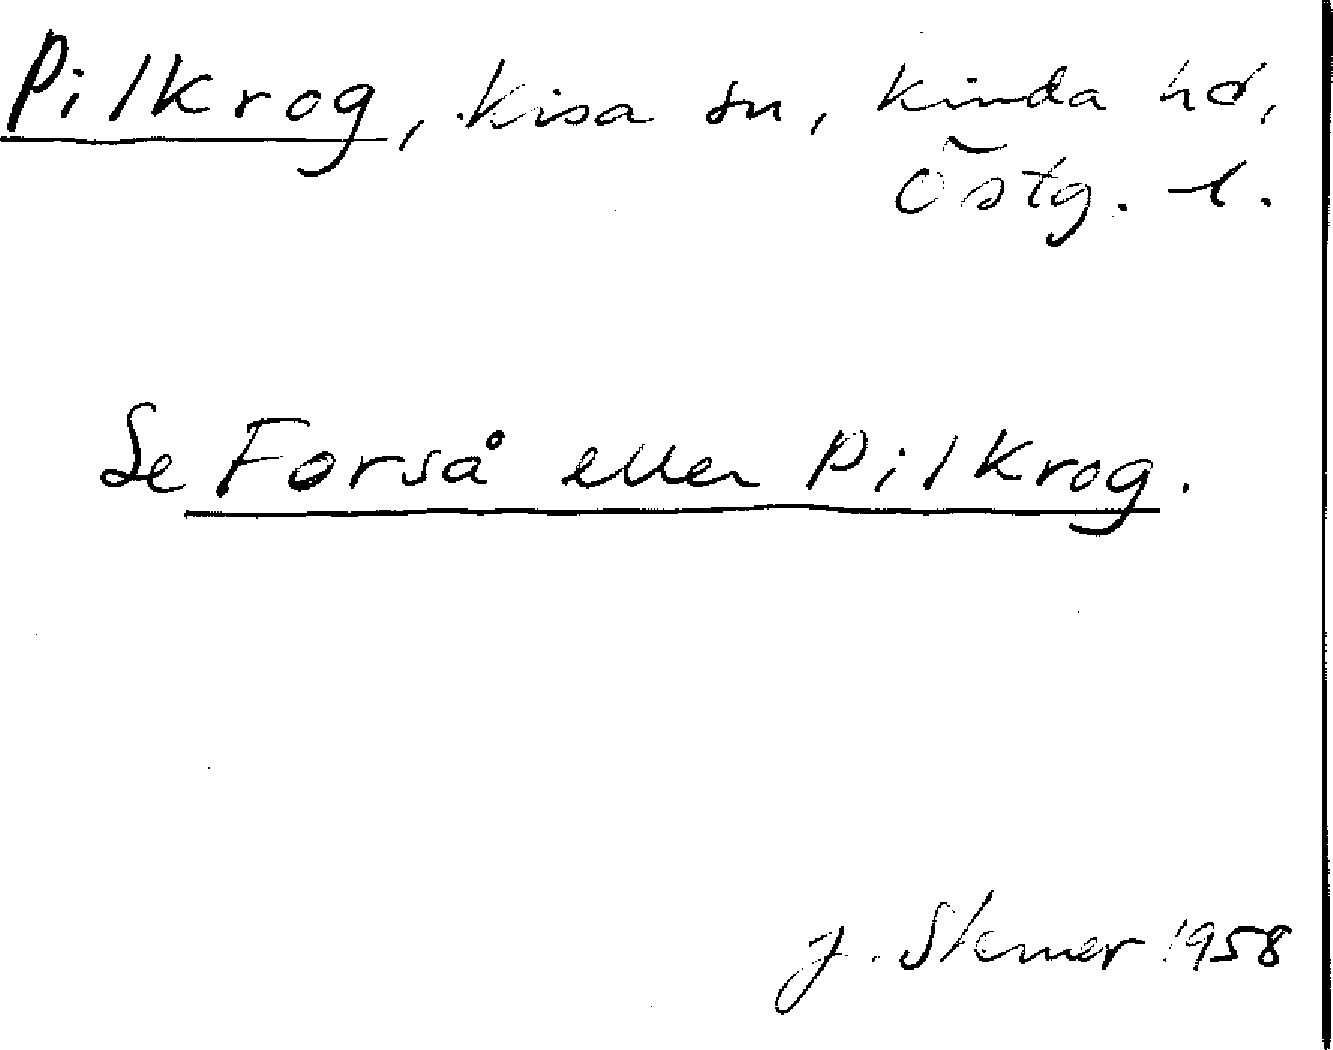 Pilkrog, Kisa sn, Kinda hd,
Östg. l.
Se Forså eller Pilkrog.
J. 1958